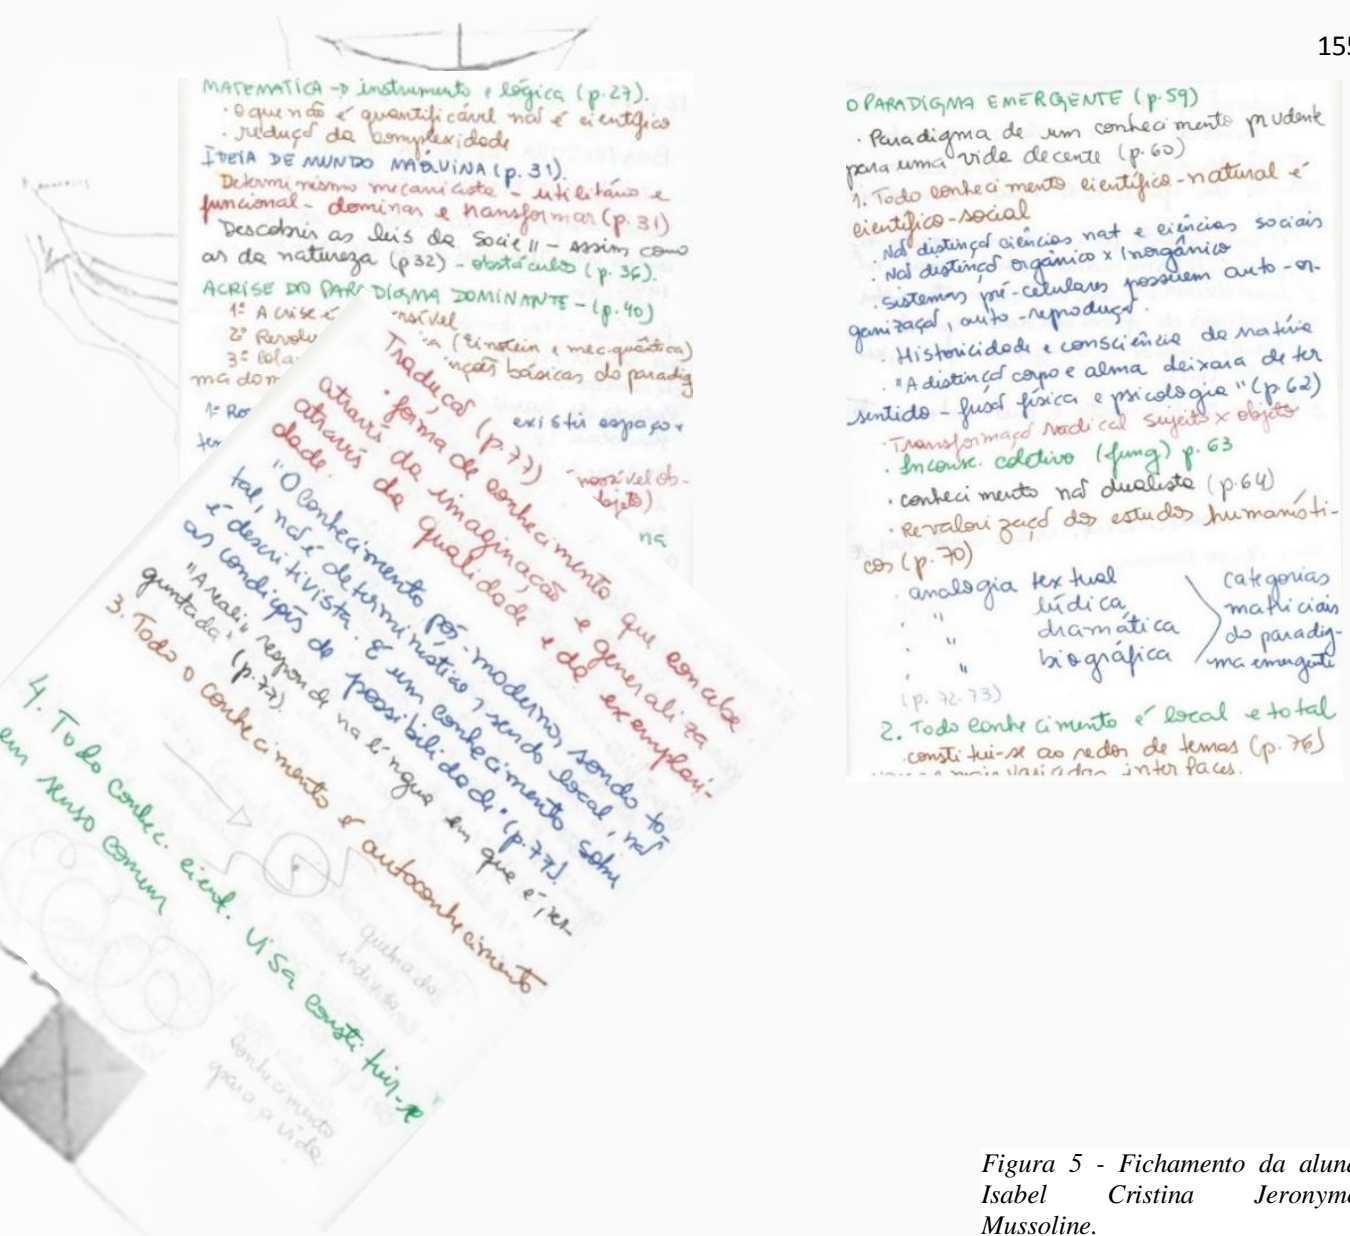 155
MATEMÁTICA → instrumento e lógica (p.27).
· o que não é quantificável não é científico
· redução da complexidade
IDEIA DE MUNDO MÁQUINA (p. 31).
Determinismo mecanicista - utilitário e
funcional - dominar e transformar (p. 31)
Descobrir as leis da socie" - assim como
as da natureza (p32) - obstáculo (p. 36).
A CRISE DO PARADIGMA DOMINANTE - (p.40)
1º A crise é
2º Revolu (Einstein e mec. quântica)
3º básicas do paradig
ma dom
1º existir espaço e
objeto)
na
Tradução (p.77)
· forma de conhecimento que concebe
através da imaginação e generaliza
através da qualidade e da exemplari-
dade.
"O Conhecimento pós-moderno, sendo to-
tal, não é determinístico, sendo local, não
é descritivista. É um conhecimento sobre
as condições de possibilidade" (p.77).
"A reali" responde na língua em que é per-
guntada" (p.77).
3. Todo o conhecimento é autoconhecimento
4. Todo conhec. cient. visa constituir-se
em senso comum
conhecimento
para a vida
O PARADIGMA EMERGENTE (p.59)
· Paradigma de um conhecimento prudente
para uma vida decente (p.60)
1. Todo conhecimento científico-natural é
científico-social
· Não distinção ciências nat e ciências sociais
· Não distinção orgânico x Inorgânico
· sistemas pré-celulares possuem auto-or-
ganização, auto-reprodução.
· Historicidade e consciência da matéria
· "A distinção corpo e alma deixara de ter
sentido - fusão física e psicologia" (p.62)
· Transformação radical sujeito x objeto
· Inconsc. coletivo (Jung) p. 63
· conhecimento não dualista (p.64)
· Revalorização dos estudos humanísti-
cos (p. 70)
· analogia textual categorias
. " lúdica matriciais
. " dramática do paradig-
. " biográfica ma emergente
(p. 72-73)
2. Todo conhecimento é local e total
· constitui-se ao redor de temas (p. 76)
interfaces.
Figura 5 - Fichamento da aluna
Isabel Cristina Jeronymo
Mussoline.